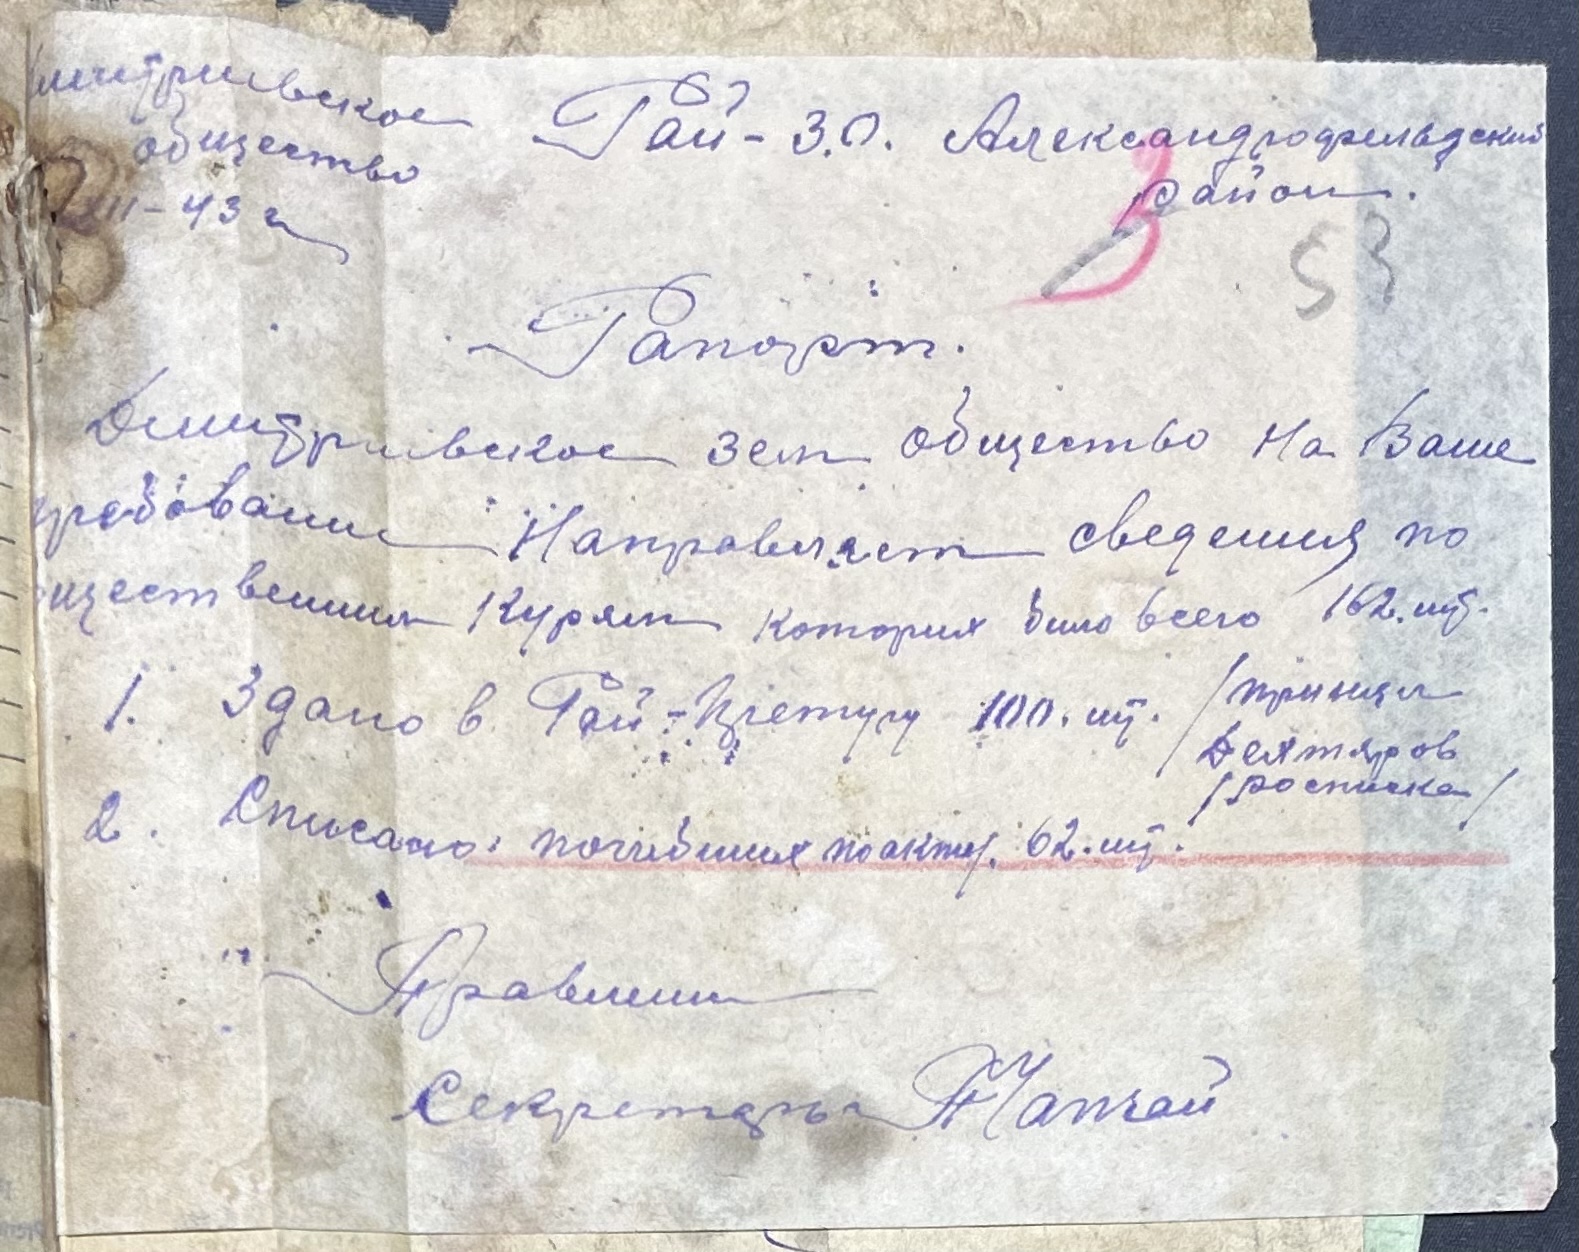 митриевское
общество
XII-43 г
Рай-З.О. Александрофельдский
район.
53
Рапорт.
Дмитриевское зем общество на Ваше
требование Направляет сведения по
щественния Курям которих било всего 162. шт.
1. Здано в Рай- 100. шт. /принял
Дехтяров
/росписка/
2. Списано: погибших по акту. 62. шт.
Правлени
Секретарь Чапчай